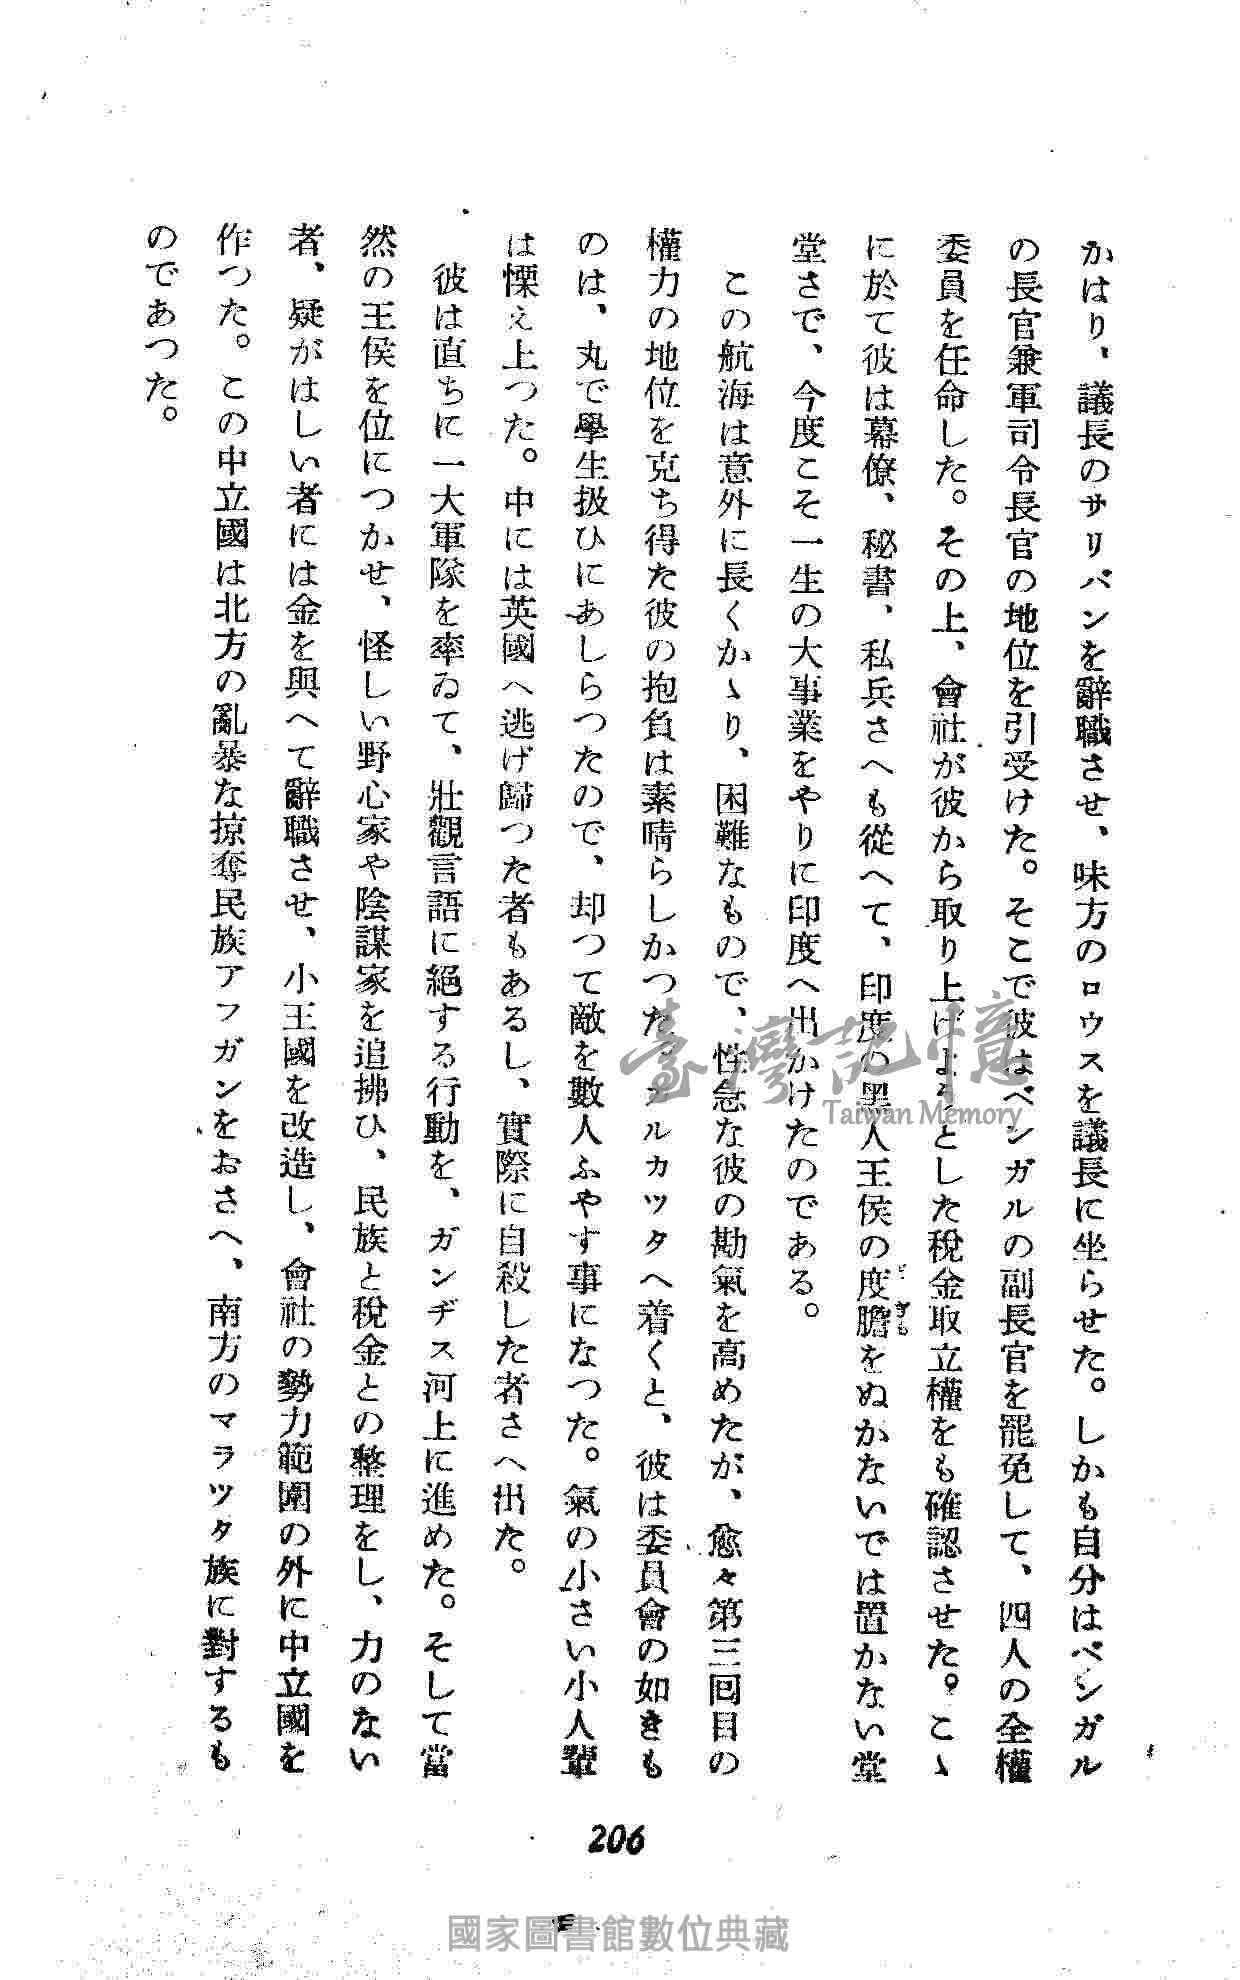 かはり、議長のサリバンを辭職させ、味方のロウスを議長に坐らせた。しかも自分はベンガル
の長官兼軍司令長官の地位を引受けた。そこで彼はベンガルの副長官を罷免して、四人の全權
委員を任命した。その上、會社が彼から取り上げようとした稅金取立權をも確認させた。こゝ
に於て彼は幕僚、秘書、私兵さへも從へて、印度の黑人王侯の度膽をぬかないでは置かない堂
ど ぎも
堂さで、今度こそ一生の大事業をやりに印度へ出かけたのである。
この航海は意外に長くかゝり、困難なもので、性急な彼の勘氣を高めたが、愈々第三回目の
權力の地位を克ち得た彼の抱負は素晴らしかつた。カルカツタへ着くと、彼は委員會の如きも
のは、丸で學生扱ひにあしらつたので、却つて敵を數人ふやす事になつた。氣の小さい小人輩
は慄え上つた。中には英國へ逃げ歸つた者もあるし、實際に自殺した者さへ出た。
彼は直ちに一大軍隊を率ゐて、壯觀言語に絕する行動を、ガンヂス河上に進めた。そして當
然の王侯を位につかせ、怪しい野心家や陰謀家を追拂ひ、民族と稅金との整理をし、力のない
者、疑がはしい者には金を與へて辭職させ、小王國を改造し、會社の勢力範圍の外に中立國を
作つた。この中立國は北方の亂暴な掠奪民族アフガンをおさへ、南方のマラツタ族に對するも
のであつた。
206
臺灣記憶
Taiwan Memory
國家圖書館數位典藏